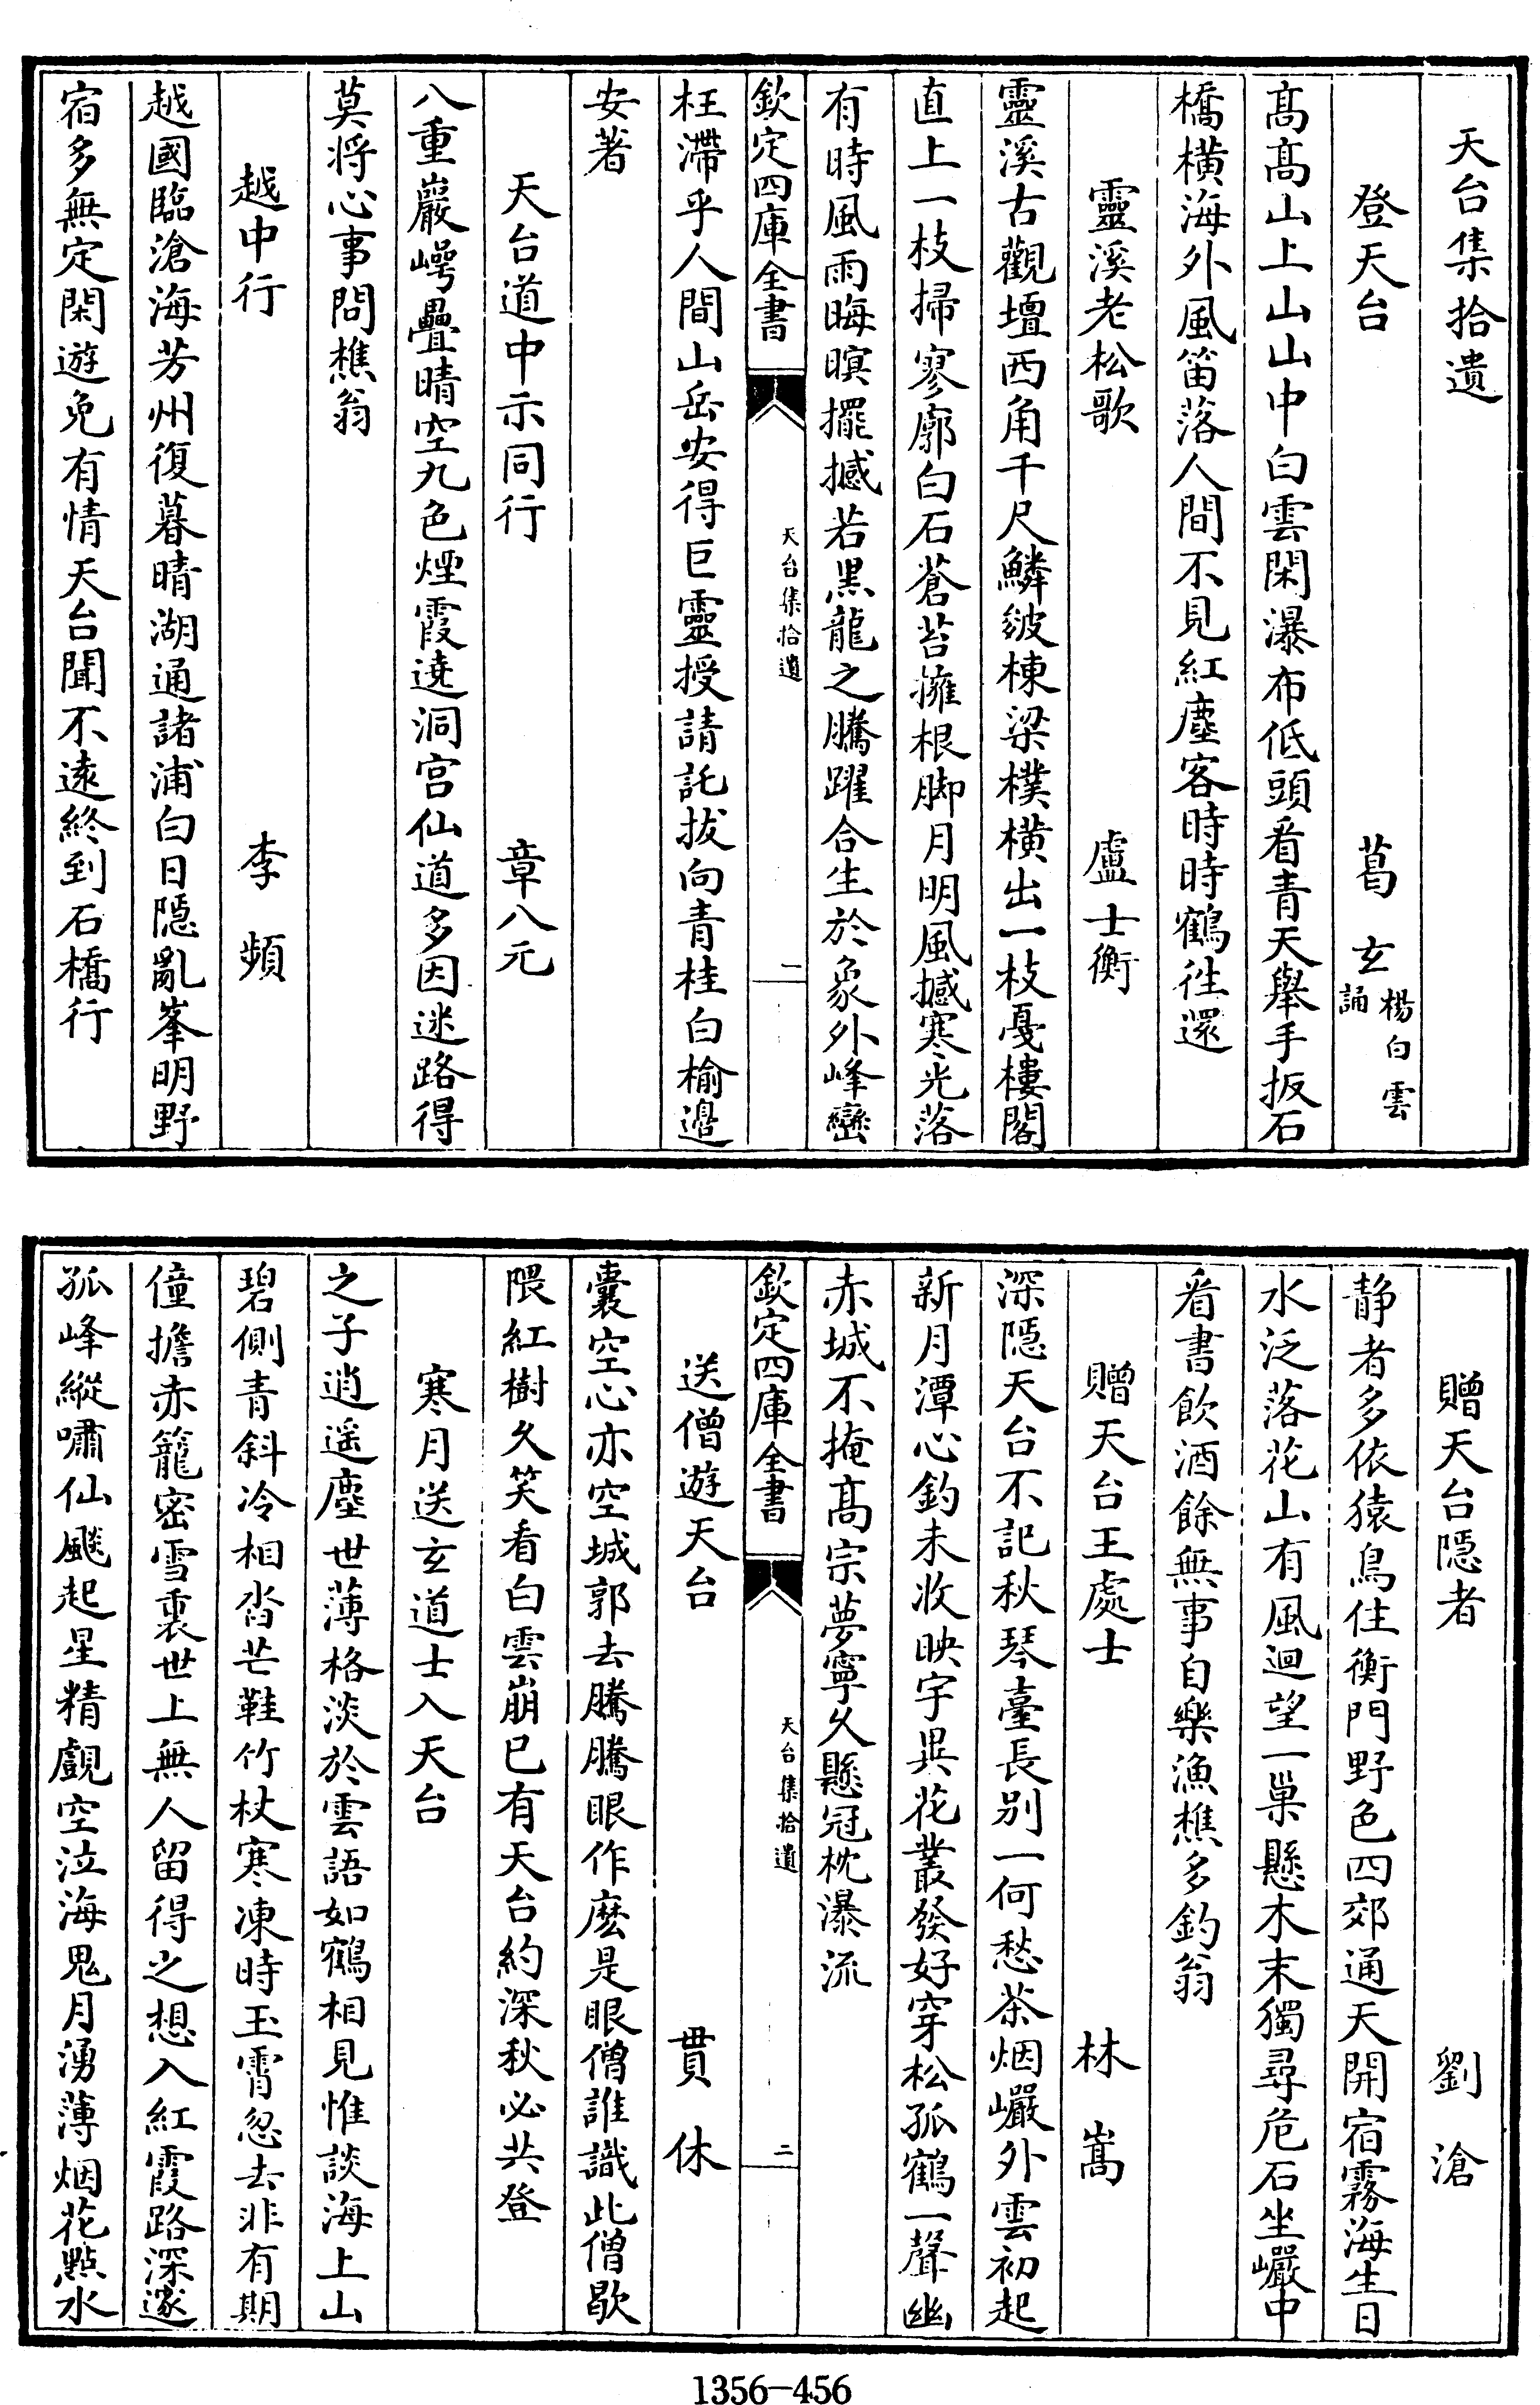 天台集拾遺
登天台　葛玄楊白雲誦
髙髙山上山山中白雲閑瀑布低頭看青天舉手扳石
橋橫海外風笛落人間不見紅塵客時時鶴徃還
靈溪老松歌　盧士衡
靈溪古觀壇西角千尺鱗皴棟梁樸橫出一枝戞樓閣
直上一枝掃寥廓白石蒼苔擁根脚月明風撼寒光落
有時風雨晦暝擺撼若黒龍之騰躍合生於象外峰巒
欽定四庫全書　天台集拾遺　一
枉滯乎人間山岳安得巨靈授請託拔向青桂白榆邉
安著
天台道中示同行　章八元
八重巖崿疊晴空九色煙霞遶洞宫仙道多因迷路得
莫将心事問樵翁
越中行　李頻
越國臨滄海芳州復暮晴湖通諸浦白日隠亂峯明野
宿多無定閑遊免有情天台聞不逺終到石橋行
贈天台隠者　劉滄
静者多依猿鳥住衡門野色四郊通天開宿霧海生日
水泛落花山有風迴望一巢懸木末獨尋危石坐巗中
看書飲酒餘無事自樂漁樵多釣翁
贈天台王處士　林嵩
深隠天台不記秋琴臺長别一何愁茶烟巗外雲初起
新月潭心釣未收映宇異花叢發好穿松孤鶴一聲幽
赤城不掩髙宗夢寧久懸冠枕瀑流
欽定四庫全書　天台集拾遺　二
送僧遊天台　貫休
囊空心亦空城郭去騰騰眼作麽是眼僧誰識此僧歇
隈紅樹久笑看白雲崩已有天台約深秋必共登
寒月送玄道士入天台
之子逍遥塵世薄格淡於雲語如鶴相見惟談海上山
碧側青斜冷相沓芒鞋竹杖寒凍時玉霄忽去非有期
僮擔赤籠密雪裏世上無人留得之想入紅霞路深邃
孤峰縱嘯仙飈起星精覷空泣海鬼月湧薄烟花點水
1356-456